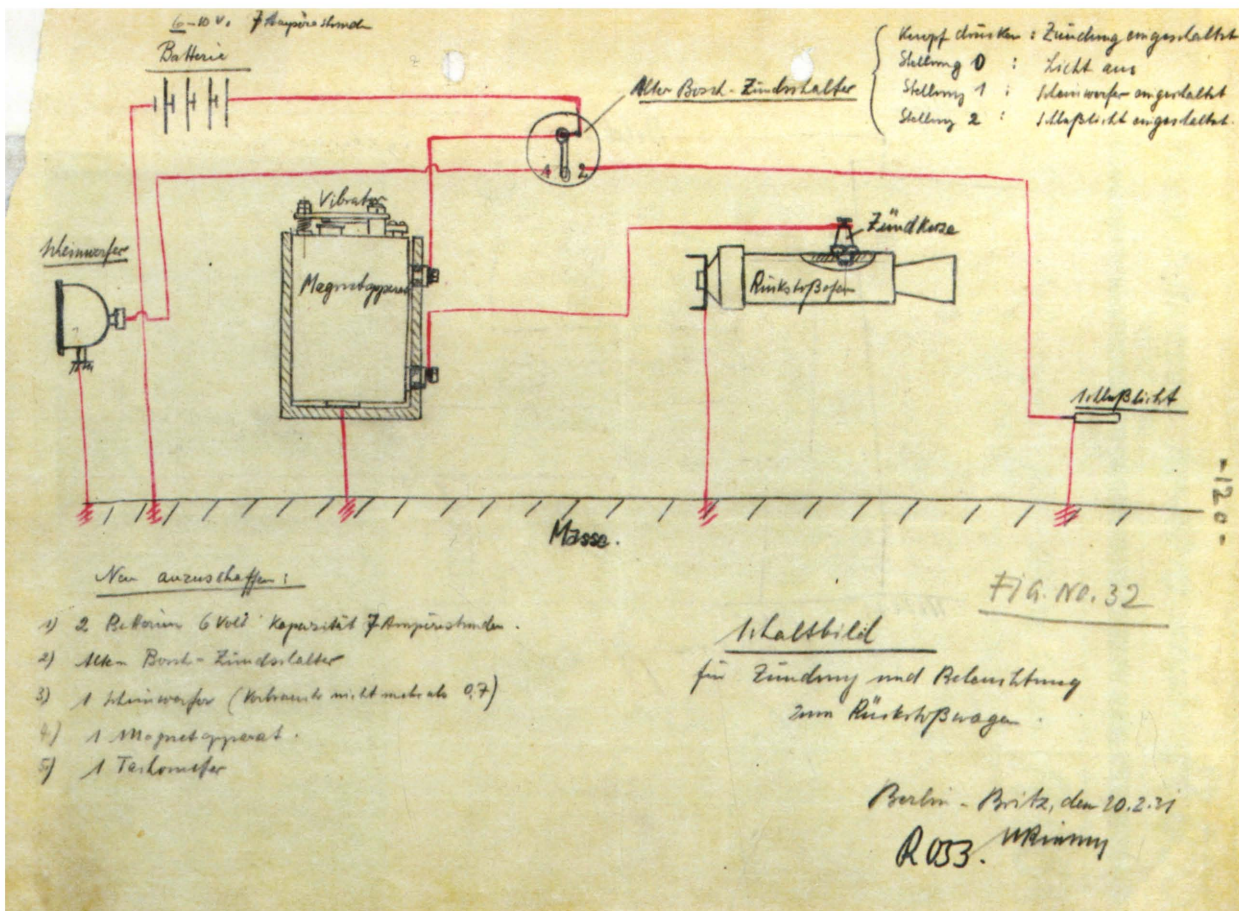 6-10 V. 7 Ampèrestunden
Batterie
Knopf drücken : Zündung eingeschaltet
Stellung 0 : Licht aus
Stellung 1 : Scheinwerfer eingeschaltet
Stellung 2 : Schlußlicht eingeschaltet.
Alter Bosch-Zündschalter
1 2
Vibrator
Zündkerze
Scheinwerfer
Magnetapparat
Rückstoßofen
Schlußlicht
-120-
Masse.
Neu anzuschaffen:
FIG. NO. 32
1) 2 Batterien 6 Volt Kapazität 7 Ampèrestunden.
2) Alten Bosch-Zündschalter
3) 1 Scheinwerfer (Verbraucht nicht mehr als 0,7)
4) 1 Magnetapparat.
5) 1 Tachometer
Schaltbild
für Zündung und Beleuchtung
zum Rückstoßwagen.
Berlin-Britz, den 20.2.31
R 033.